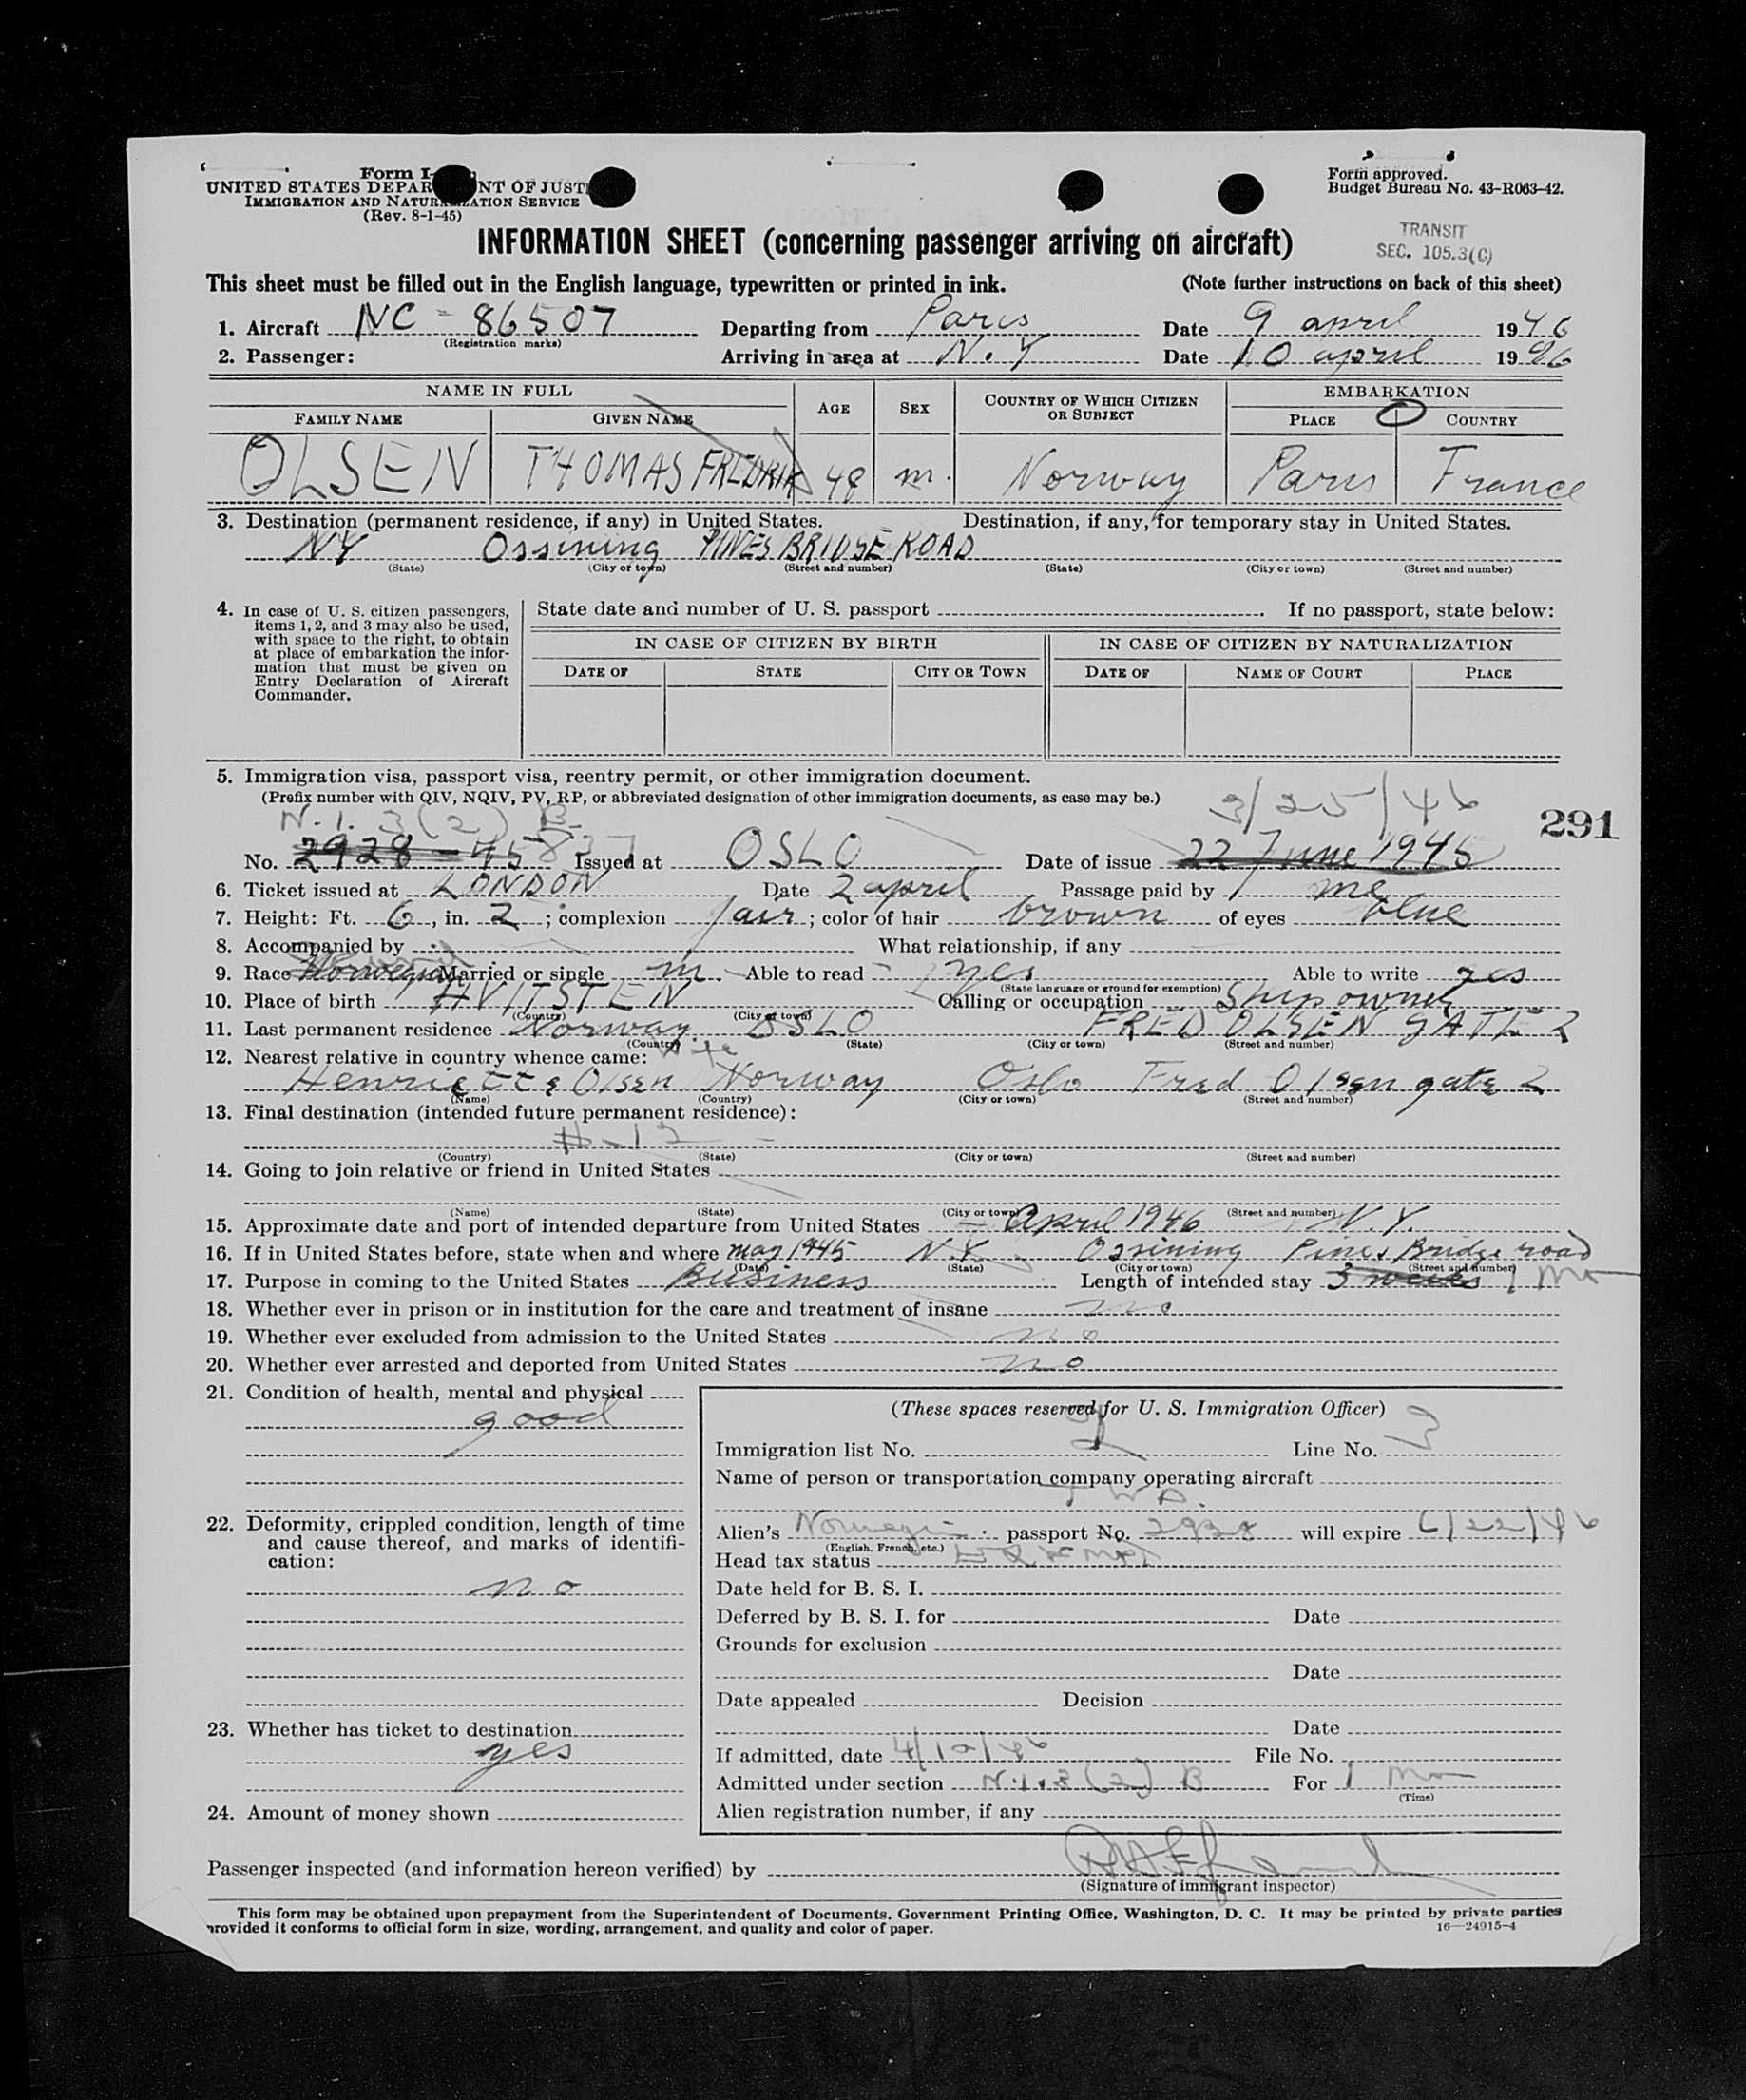 Form I-
UNITED STATES DEPAR NT OF JUST
IMMIGRATION AND NATURALIZATION SERVICE
(Rev. 8-1-45)
Form approved.
Budget Bureau No. 43-R063-42.
TRANSIT
SEC. 105.3(C)
INFORMATION SHEET (concerning passenger arriving on aircraft)
This sheet must be filled out in the English language, typewritten or printed in ink. (Note further instructions on back of this sheet)
1. Aircraft NC - 86507 Departing from Paris Date 9 april 1946
(Registration marks)
2. Passenger: Arriving in area at N.Y Date 10 april 1946
NAME IN FULL AGE SEX COUNTRY OF WHICH CITIZEN OR SUBJECT EMBARKATION
FAMILY NAME GIVEN NAME PLACE COUNTRY
OLSEN THOMAS FREDRIK 48 m. Norway Paris France
3. Destination (permanent residence, if any) in United States. Destination, if any, for temporary stay in United States.
NY Ossining PINES BRIDGE ROAD
(State) (City or town) (Street and number) (State) (City or town) (Street and number)
4. In case of U. S. citizen passengers, items 1, 2, and 3 may also be used, with space to the right, to obtain at place of embarkation the information that must be given on Entry Declaration of Aircraft Commander.
State date and number of U. S. passport . If no passport, state below:
IN CASE OF CITIZEN BY BIRTH IN CASE OF CITIZEN BY NATURALIZATION
DATE OF STATE CITY OR TOWN DATE OF NAME OF COURT PLACE
5. Immigration visa, passport visa, reentry permit, or other immigration document.
(Prefix number with QIV, NQIV, PV, RP, or abbreviated designation of other immigration documents, as case may be.) 3/25/46
291
N.I. 3(2) B.
No. 2928-45 Issued at OSLO Date of issue 22 June 1945
6. Ticket issued at LONDON Date 2 april Passage paid by me
7. Height: Ft. 6, in. 2; complexion fair; color of hair brown of eyes blue
8. Accompanied by What relationship, if any
9. Race Norwegian Married or single m. Able to read yes Able to write yes
(State language or ground for exemption)
10. Place of birth HVITSTEN Calling or occupation Ship owner
(Country) (City or town)
11. Last permanent residence Norway. OSLO FRED OLSEN GATE 2
(Country) (State) (City or town) (Street and number)
12. Nearest relative in country whence came: Wife
Henriette Olsen Norway Oslo Fred Olsen gate 2
(Name) (Country) (City or town) (Street and number)
13. Final destination (intended future permanent residence):
#-12
(Country) (State) (City or town) (Street and number)
14. Going to join relative or friend in United States
(Name) (State) (City or town) (Street and number)
15. Approximate date and port of intended departure from United States April 1946 N.Y.
16. If in United States before, state when and where may 1945 N.Y. Ossining Pines Bridge road
(Date) (State) (City or town) (Street and number)
17. Purpose in coming to the United States Business Length of intended stay 3 weeks 1 Mo
18. Whether ever in prison or in institution for the care and treatment of insane no
19. Whether ever excluded from admission to the United States no
20. Whether ever arrested and deported from United States no
21. Condition of health, mental and physical
good
22. Deformity, crippled condition, length of time and cause thereof, and marks of identification:
no
23. Whether has ticket to destination
yes
24. Amount of money shown
(These spaces reserved for U. S. Immigration Officer)
Immigration list No. Line No. 3
Name of person or transportation company operating aircraft
TWA.
Alien's Norwegian passport No. 2928 will expire 6/22/46
(English, French, etc.)
Head tax status
Date held for B. S. I.
Deferred by B. S. I. for Date
Grounds for exclusion
Date
Date appealed Decision
Date
If admitted, date 4/10/46 File No.
Admitted under section N.I. 3 (2) B For 1 Mo
(Time)
Alien registration number, if any
Passenger inspected (and information hereon verified) by
(Signature of immigrant inspector)
This form may be obtained upon prepayment from the Superintendent of Documents, Government Printing Office, Washington, D. C. It may be printed by private parties
provided it conforms to official form in size, wording, arrangement, and quality and color of paper.
16—24915-4